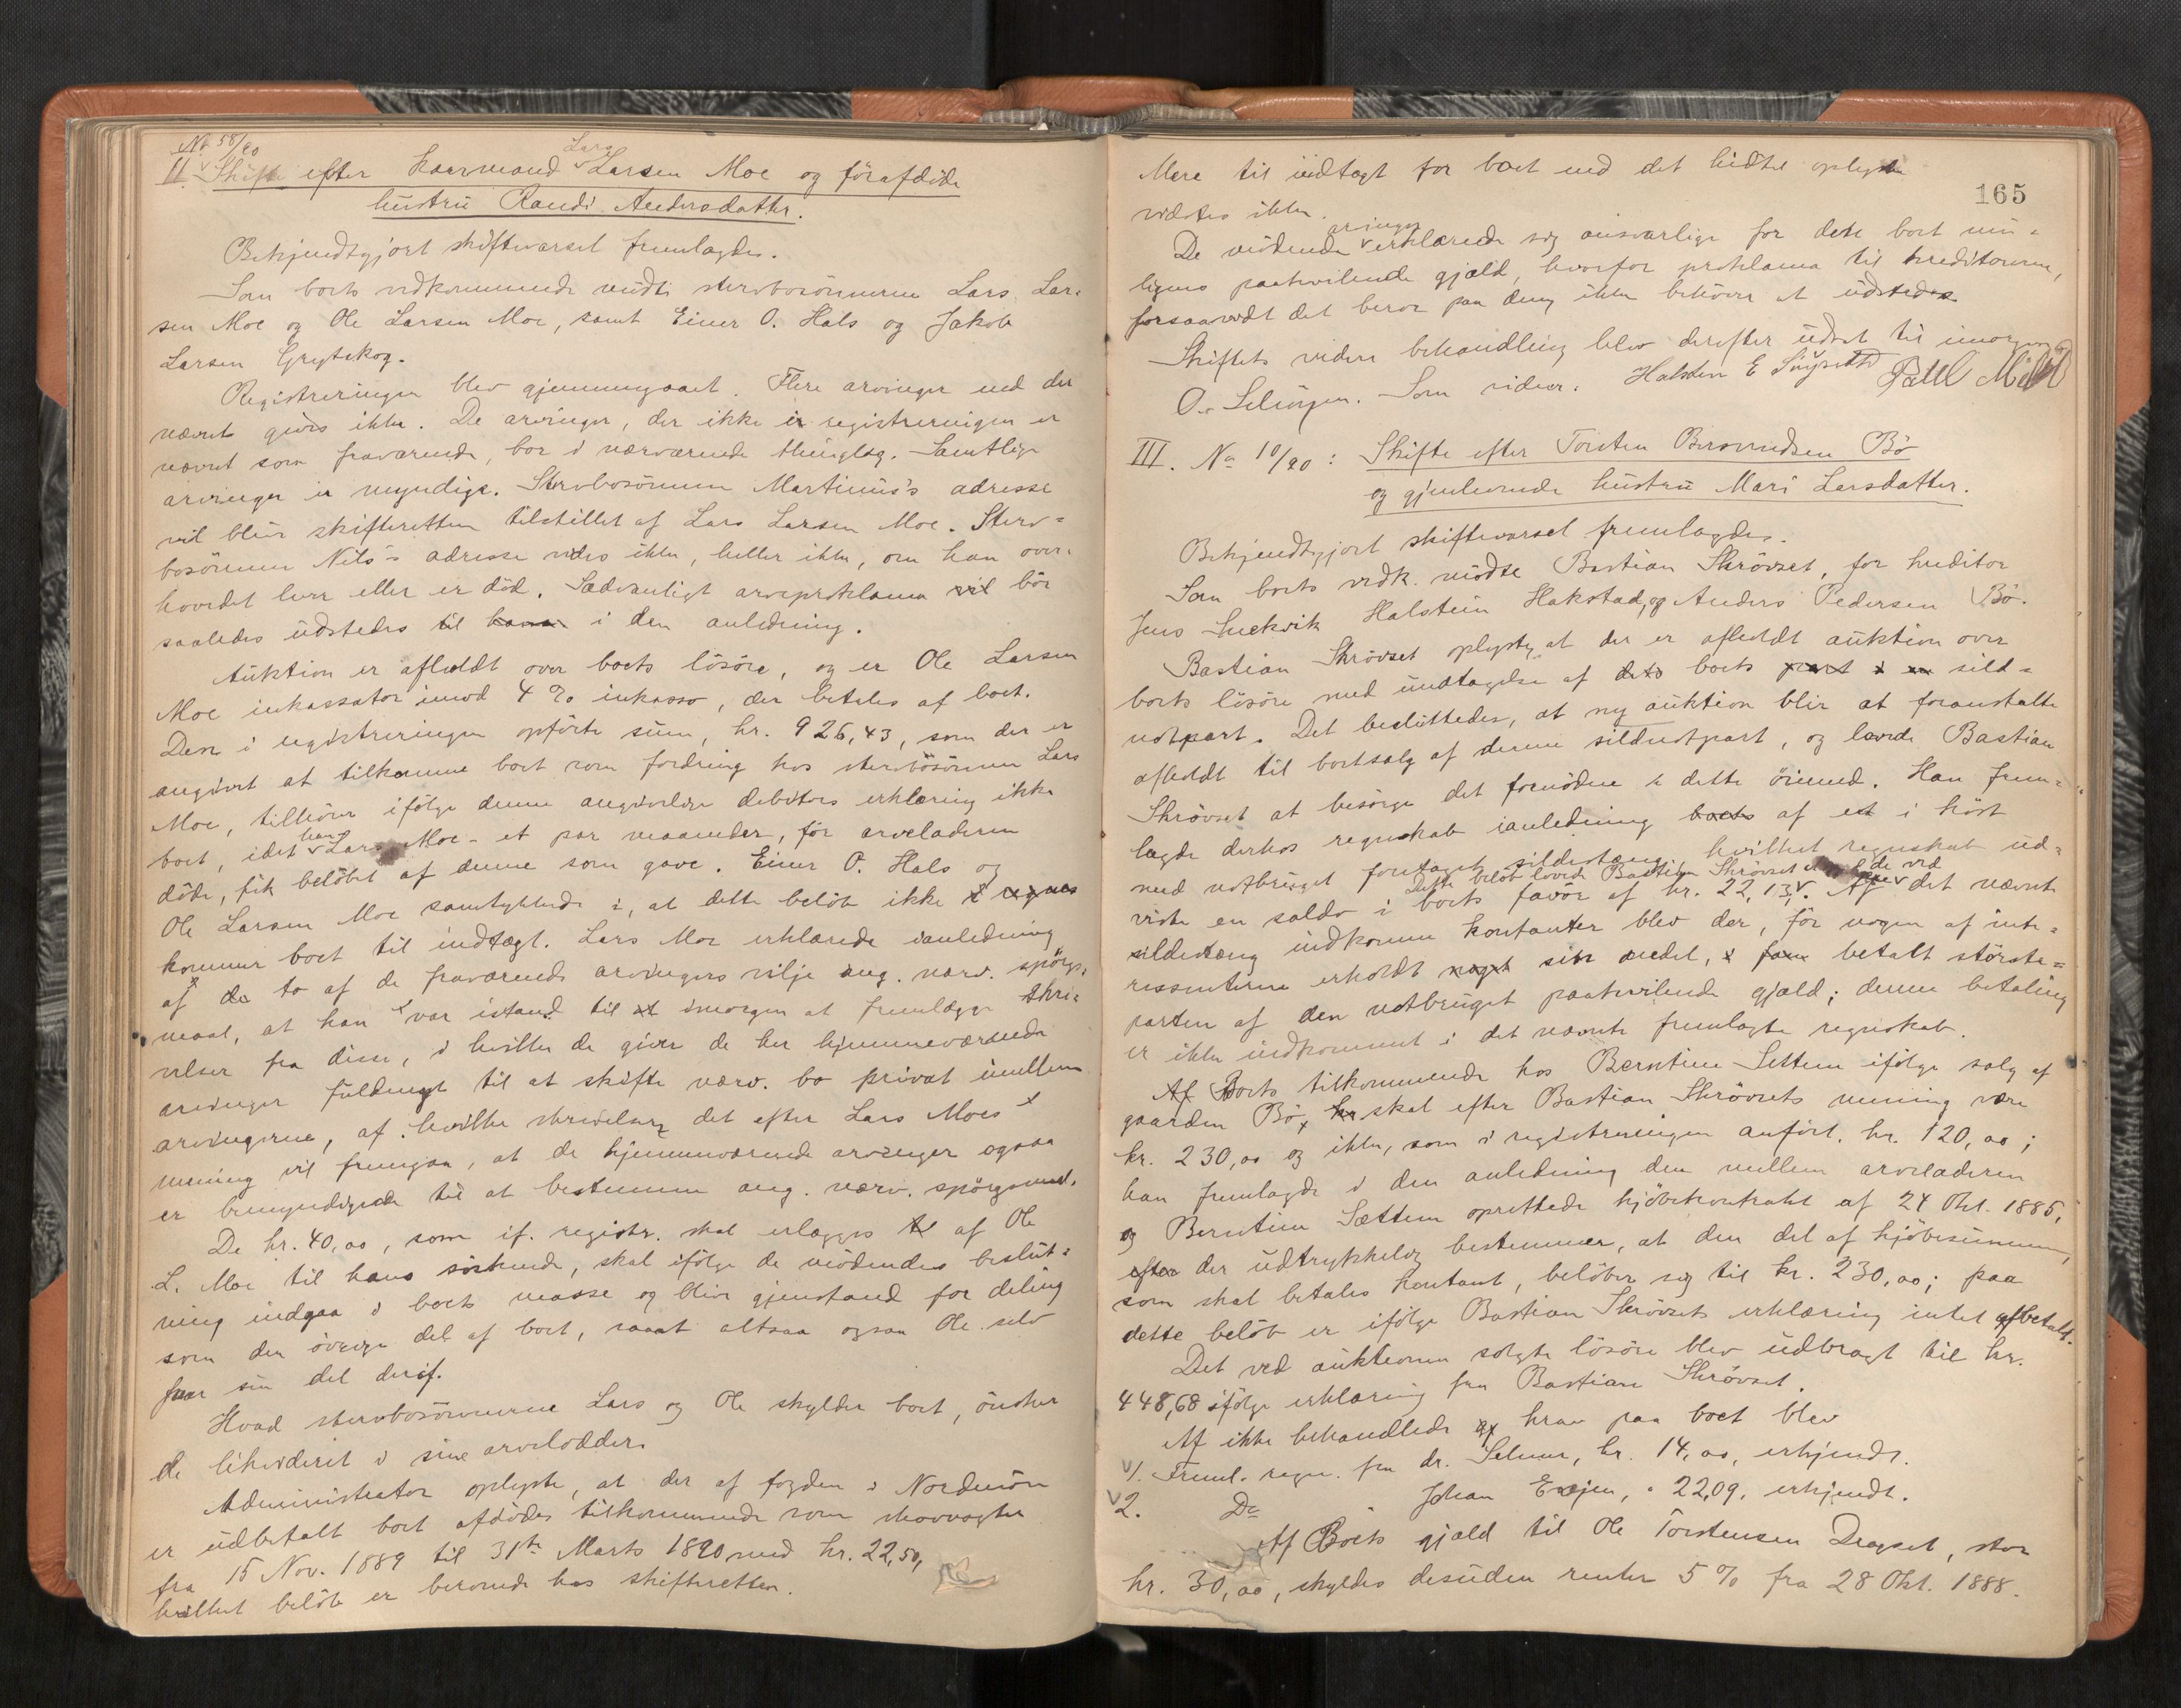 No 58/90
II Skifte efter kaarmand Lars Larsen Moe og förafdöde
hustru Randi Andersdatter.
Bekjendtgjort skiftevarsel fremlagdes.
Som boets vedkommende mødte stervbosönnerne Lars Lar-
sen Moe og Ole Larsen Moe, samt Einer O. Hals og Jakob
Larsen Grytskog.
Registreringen blev gjennemgaaet. Flere arvinger end der
nævnt gives ikke. De arvinger, der ikke i registreringen er
nævnt som fraværende, bor i nærværende thinglag. Samtlige
arvinger er myndige. Stervbosönnen Martinus's adresse
vil blive skifteretten tilstillet af Lars Larsen Moe. Sterv-
bosönnen Nils's adresse vides ikke, heller ikke, om han over-
hovedet lever eller er död. Sædvanligt arveproklama vil bör
saaledes udstedes til ham i den anledning.
Auktion er afholdt over boets lösöre, og er Ole Larsen
Moe inkassator imod 4 % inkasso, der betales af boet.
Den i registreringen opförte sum, kr. 926,43, som der er
angivet at tilkomme boet som fordring hos stervbosönnen Lars
Moe, tilhörer ifölge denne angivelige debitors erklæring ikke
boet, idet han Lars Moe - et par maaneder, för arveladeren
döde, fik belöbet af denne som gave. Einer O. Hals og
Ole Larsen Moe samtykkede i, at dette belöb ikke i regnes
kommer boet til indtægt. Lars Moe erklærede i anledning
af de to af de fraværende arvingers vilje ang. nærv. spörgs-
maal, at han var istand til at imorgen at fremlægge skri-
velser fra disse, i hvilke de giver de her hjemmeværende
arvinger fuldmagt til at skifte nærv. bo privat imellem
arvingerne, af hvilke skrivelser det efter Lars Moes
mening vil fremgaa, at de hjemmeværende arvinger ogsaa
er bemyndigede til at bestemme ang. nærv. spörgsmaal.
De kr. 40,00, som if. registr. skal erlægges til af Ole
L. Moe til hans söskende, skal ifölge de mödendes beslut-
ning indgaa i boets masse og blive gjenstand for deling
som den övrige del af boet, saaat altsaa ogsaa Ole selv
faar sin del deraf.
Hvad stervbosönnerne Lars og Ole skylder boet, önsker
de likvideret i sine arvelodder.
Administrator oplyste, at der af fogden i Nordmör
er udbetalt boet afdödes tilkommende som skovvogter
fra 15 Nov. 1889 til 31te Marts 1890 med kr. 22,50,
hvilket belöb er beroende hos skifteretten.
165
Mere til indtægt for boet end det hidtil oplyste
vidstes ikke.
De mödende arvinger erklærede sig ansvarlige for dette boet mu-
ligens paahvilende gjæld, hvorfor proklama til kreditorerne,
forsaavidt det beror paa dem, ikke behöver at udstedes.
Skiftets videre behandling blev derefter udsat til imorgen
O. Selvörgen. Som vidner: Halsten E Paul
III. No 10/90: Skifte efter Torsten Bersvendsen Bö
og gjenlevende hustru Mari Larsdatter.
Bekjendtgjort skiftevarsel fremlagdes.
Som boets vedk. mödte Bastian Skrövset, for kreditor
Jens Snekvik Halstein Hakstad, og Anders Pedersen Bö.
Bastian Skrövset oplyste, at der er afholdt auktion over
boets lösöre med undtagelse af dets boets part i en sild-
notpart. Det besluttedes, at ny auktion blir at foranstalte
afholdt til bortsalg af denne sildnotpart, og lovede Bastian
Skrövset at besörge det fornödne i dette öiemed. Han frem-
lagde derhos regnskab i anledning boets af et i höst
med notbruget foretaget sildestæng, hvilket regnskab ud-
Dette belöb lovede Bastian Skrövset de ved
viste en saldo i boets favör af kr. 22,13. Af det nævnte
sildestæng indkomne kontanter blev der, för nogen af inte-
ressenterne erholdt noget sin andel, betalt störste-
parten af den notbruget paahvilende gjæld; denne betaling
er ikke indkommet i det nævnte fremlagte regnskab.
Af Boets tilkommende hos Berntine Settem ifölge salg af
gaarden Bö, kr skal efter Bastian Skrövsets mening være
kr. 230,00 og ikke, som i registreringen anfört, kr. 120,00;
han fremlagde i den anledning den mellem arveladeren
og Berntine Sættem oprettede kjöbekontrakt af 24 Okt. 1885,
efter der udtrykkelig bestemmer, at den del af kjöbesummen,
som skal betales kontant, belöber sig til kr. 230,00; paa
dette belöb er ifölge Bastian Skrövsets erklæring intet afbetalt.
Det ved auktionen solgte lösöre blev udbragt til kr.
448,68 ifölge erklæring fra Bastian Skrövset.
Af ikke behandlede krav paa boet blev
1. Freml. regn. fra dr. Selmer, kr. 14,00, erkjendt.
2. Do " Johan Evjen, " 22,09, erkjendt.
Af Boets gjæld til Ole Torstensen Dragset, stor
kr. 30,00, skyldes desuden renter 5 % fra 28 Okt. 1888.